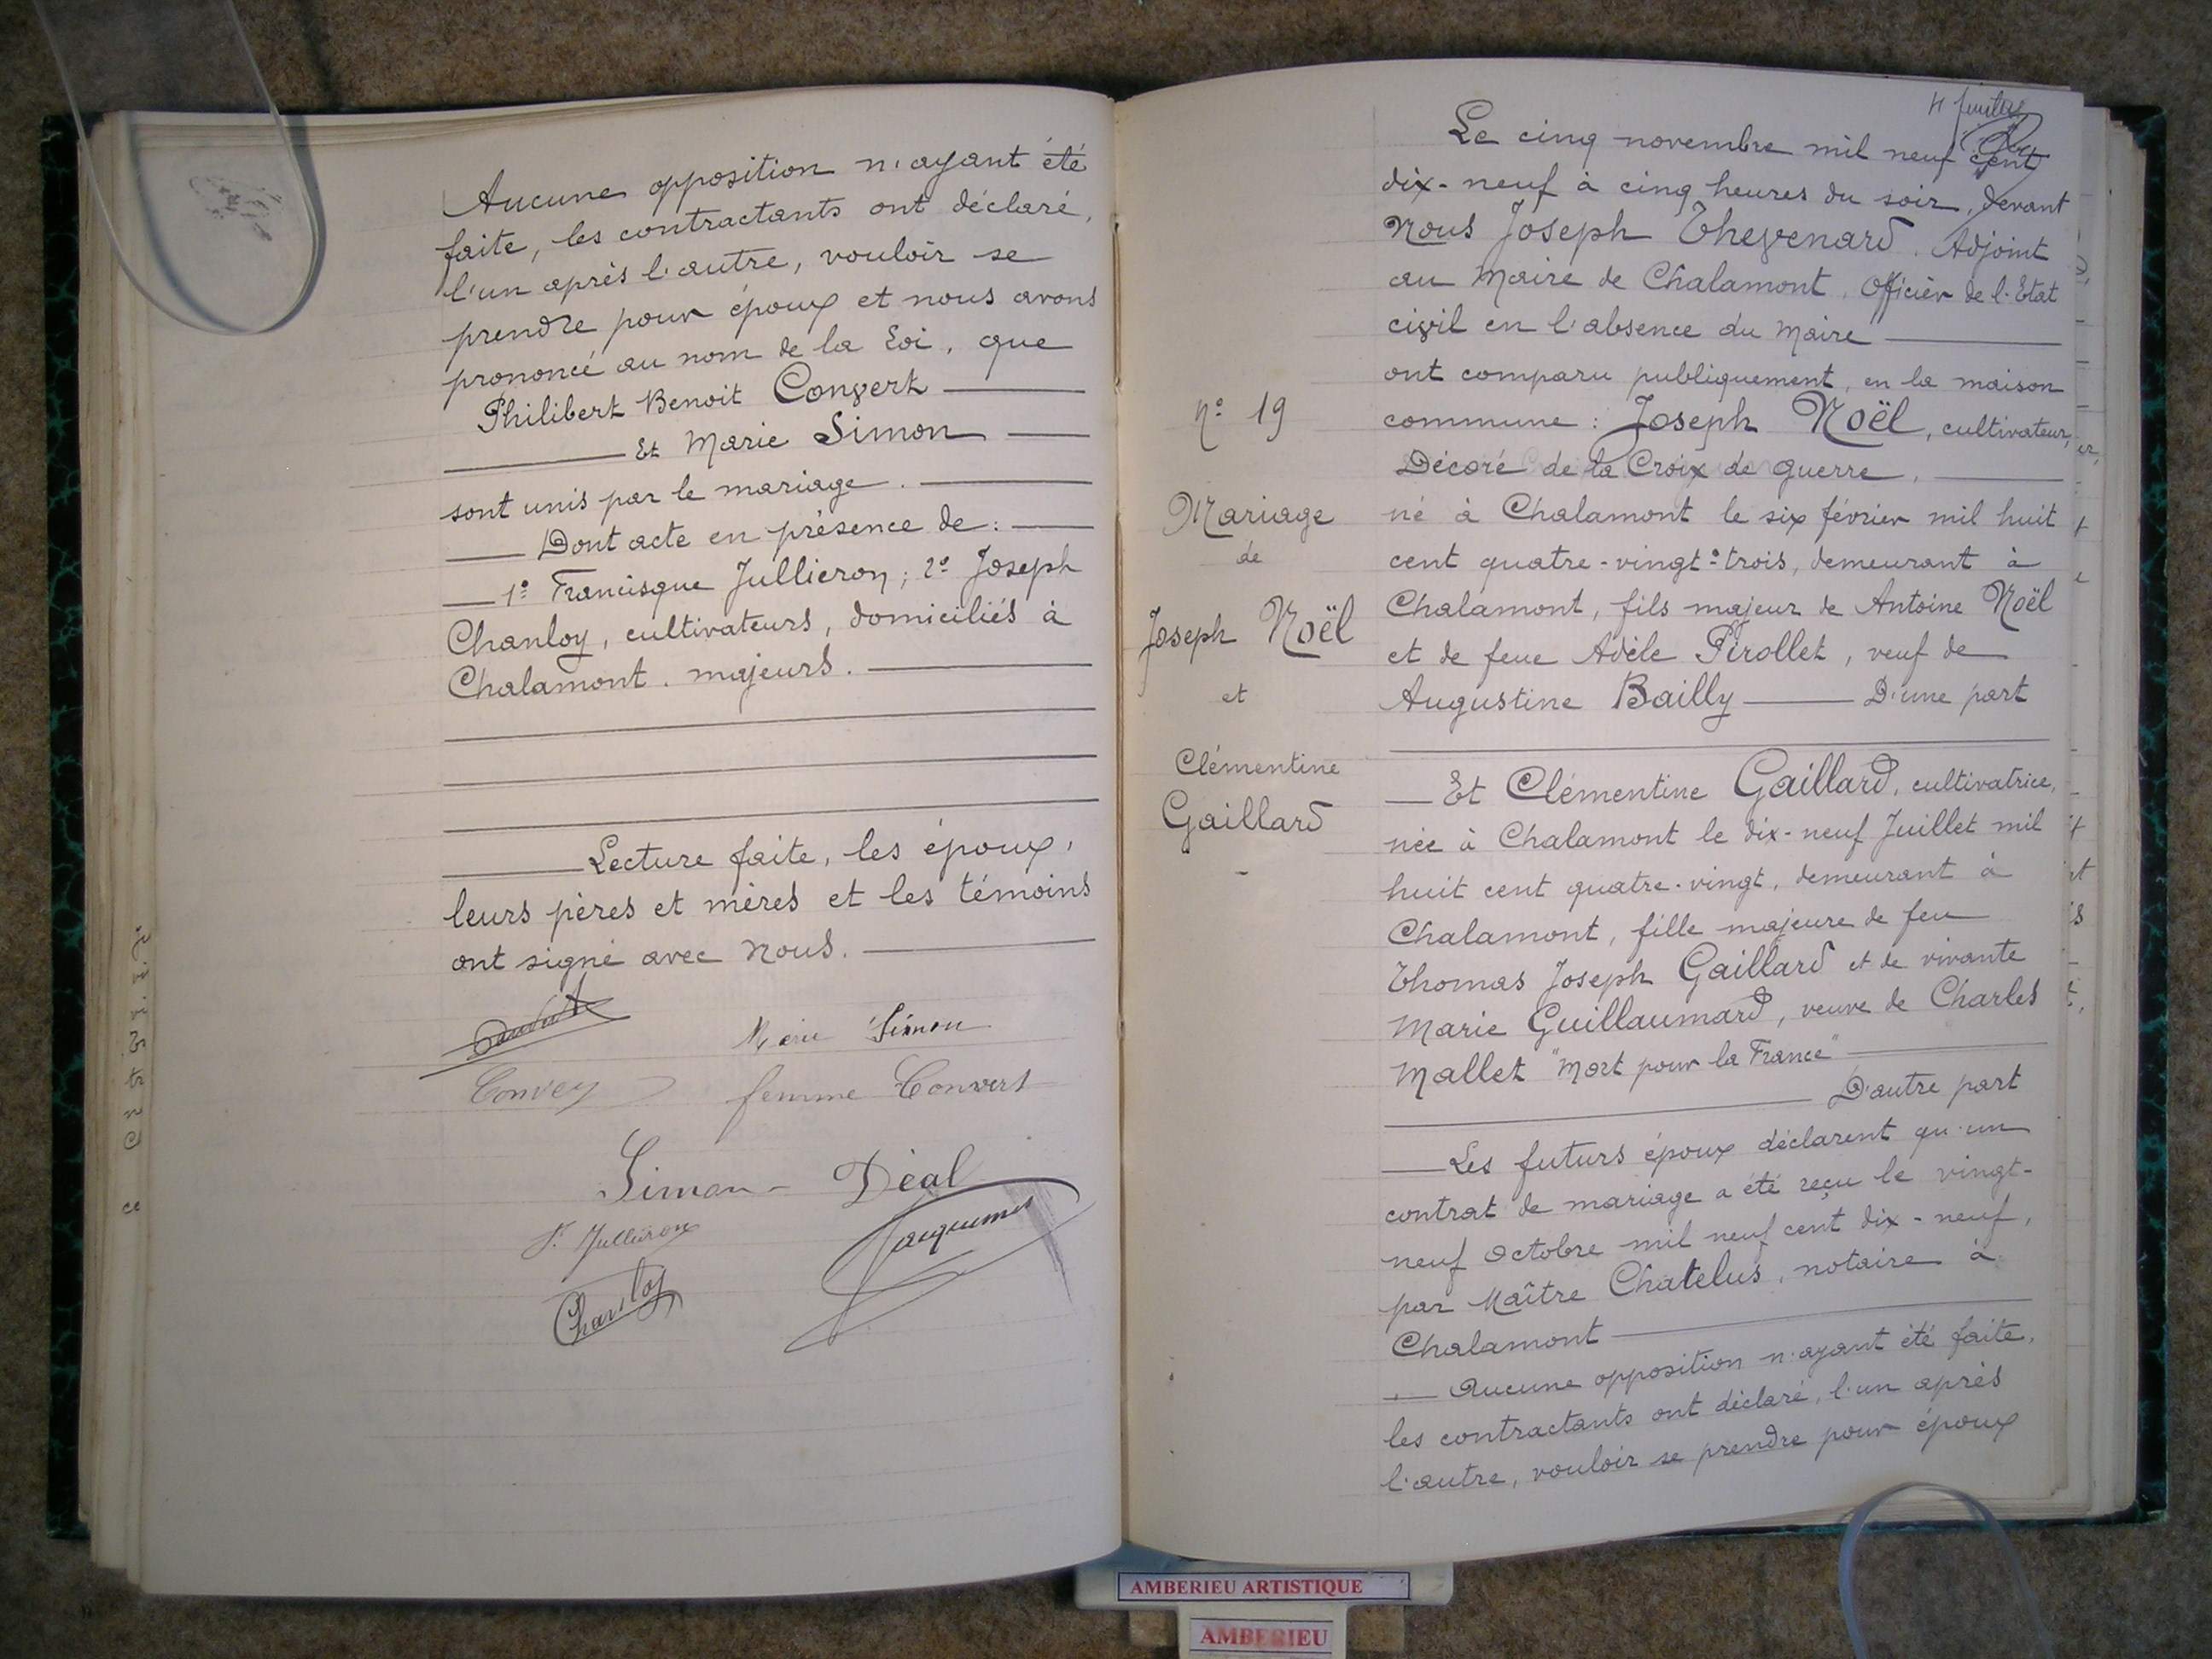 Aucune opposition n'ayant été
faite, les contractants ont déclaré,
l'un après l'autre, vouloir se
prendre pour époux et nous avons
prononcé au nom de la Loi, que
Philibert Benoit Convert
Et Marie Simon
sont unis par le mariage.
Dont acte en présence de :
1º Francisque Jullieron ; 2º Joseph
Chanloy, cultivateurs, domiciliés à
Chalamont. majeurs.
Lecture faite, les époux,
leurs pères et mères et les témoins
ont signé avec Nous.
Marie Simon
femme Convert
Simon Déal
F. Jullieron
Chanloy
Nº 19
Mariage
de
Joseph Noël
et
Clémentine
Gaillard
Le cinq novembre mil neuf cent
dix-neuf à cinq heures du soir, devant
Nous Joseph Thevenard. Adjoint
au Maire de Chalamont. Officier de l'Etat
civil en l'absence du Maire
ont comparu publiquement, en la maison
commune : Joseph Noël, cultivateur,
Décoré de la Croix de guerre,
né à Chalamont le six février mil huit
cent quatre-vingt-trois, demeurant à
Chalamont, fils majeur de Antoine Noël
et de feue Adèle Pirollet, veuf de
Augustine Bailly D'une part
Et Clémentine Gaillard, cultivatrice,
née à Chalamont le dix-neuf Juillet mil
huit cent quatre-vingt, demeurant à
Chalamont, fille majeure de feu
Thomas Joseph Gaillard et de vivante
Marie Guillaumard, veuve de Charles
Mallet "Mort pour la France"
D'autre part
Les futurs époux déclarent qu'un
contrat de mariage a été reçu le vingt-
neuf Octobre mil neuf cent dix-neuf,
par Maître Chatelus, notaire à
Chalamont
Aucune opposition n'ayant été faite,
les contractants ont déclaré, l'un après
l'autre, vouloir se prendre pour époux
AMBERIEU ARTISTIQUE
AMBERIEU